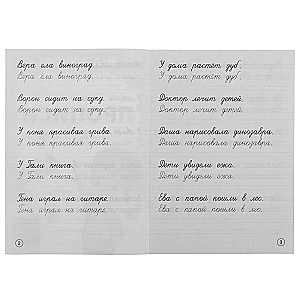 Вера ела виноград.
Вера ела виноград.
Ворон сидит на суку.
Ворон сидит на суку.
У пони красивая грива.
У пони красивая грива.
У Гали книга.
У Гали книга.
Гена играл на гитаре.
Гена играл на гитаре.
2
У дома растёт дуб.
У дома растёт дуб.
Доктор лечит детей.
Доктор лечит детей.
Даша нарисовала динозавра.
Даша нарисовала динозавра.
Дети увидели ежа.
Дети увидели ежа.
Ева с папой пошли в лес.
Ева с папой пошли в лес.
3